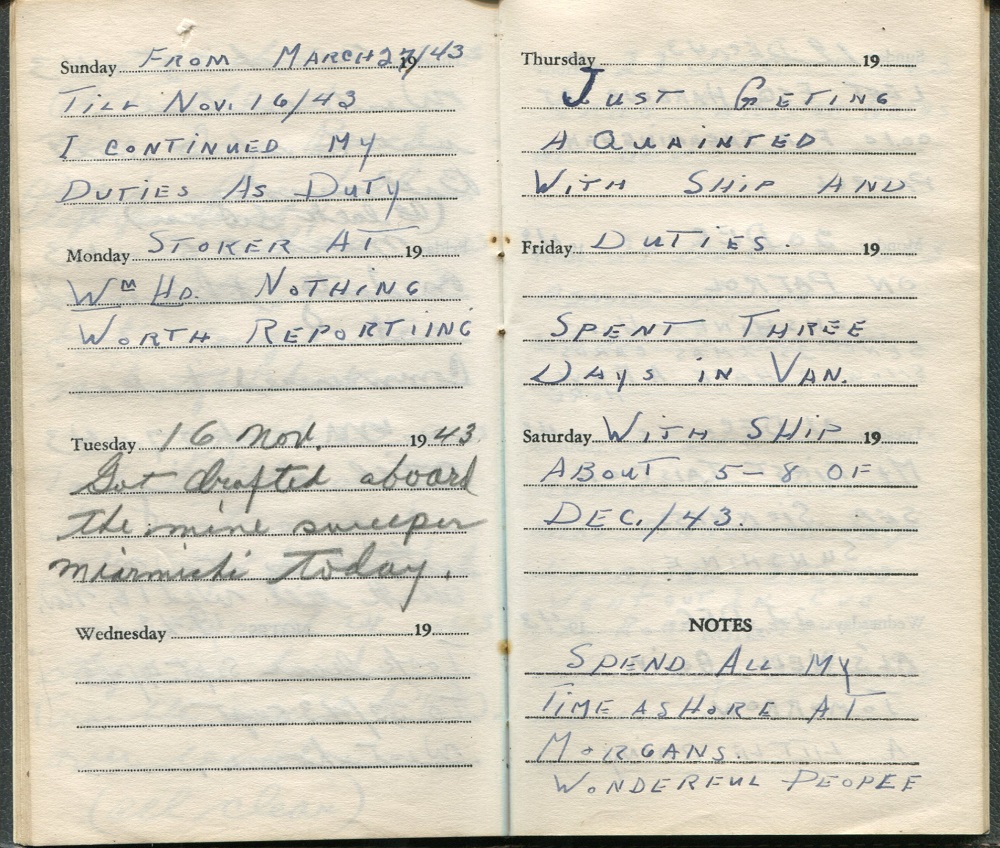 Sunday FROM MARCH 27/43 19
TILL NOV. 16/43
I CONTINUED MY
DUTIES AS DUTY
Monday STOKER AT 19
WM HD. NOTHING
WORTH REPORTIING
Tuesday 16 Nov. 19 43
Got drafted aboard
the mine sweeper
mirimichi today.
Wednesday 19
Thursday 19
JUST GETING
AQUAINTED
WITH SHIP AND
Friday DUTIES. 19
SPENT THREE
DAYS IN VAN.
Saturday WITH SHIP 19
ABOUT 5-8 OF
DEC./43.
NOTES
SPEND ALL MY
TIME ASHORE AT
MORGANS.
WONDEREUL PEOPEE